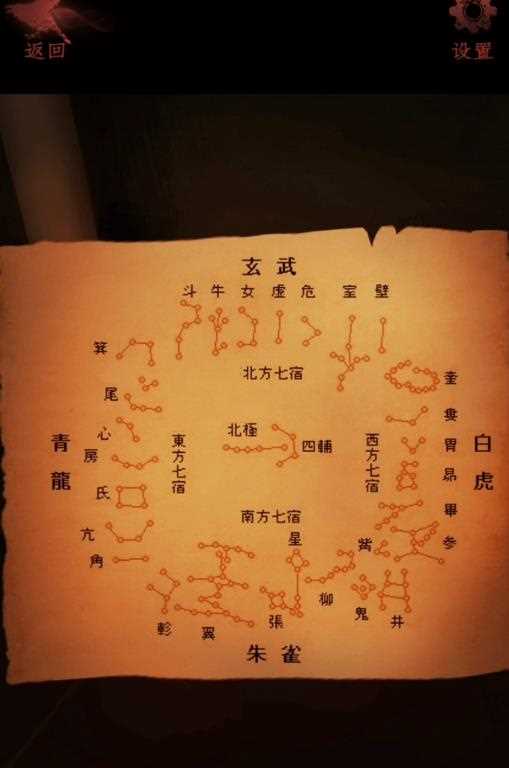 返回
设置
玄武
斗 牛 女 虚 危 室 壁
北方七宿
箕
尾
心
房
氐
亢
角
青龍
東方七宿
北極
四輔
西方七宿
奎
婁
胃
昴
畢
参
觜
白虎
南方七宿
星
軫
翼
張
柳
鬼
井
朱雀